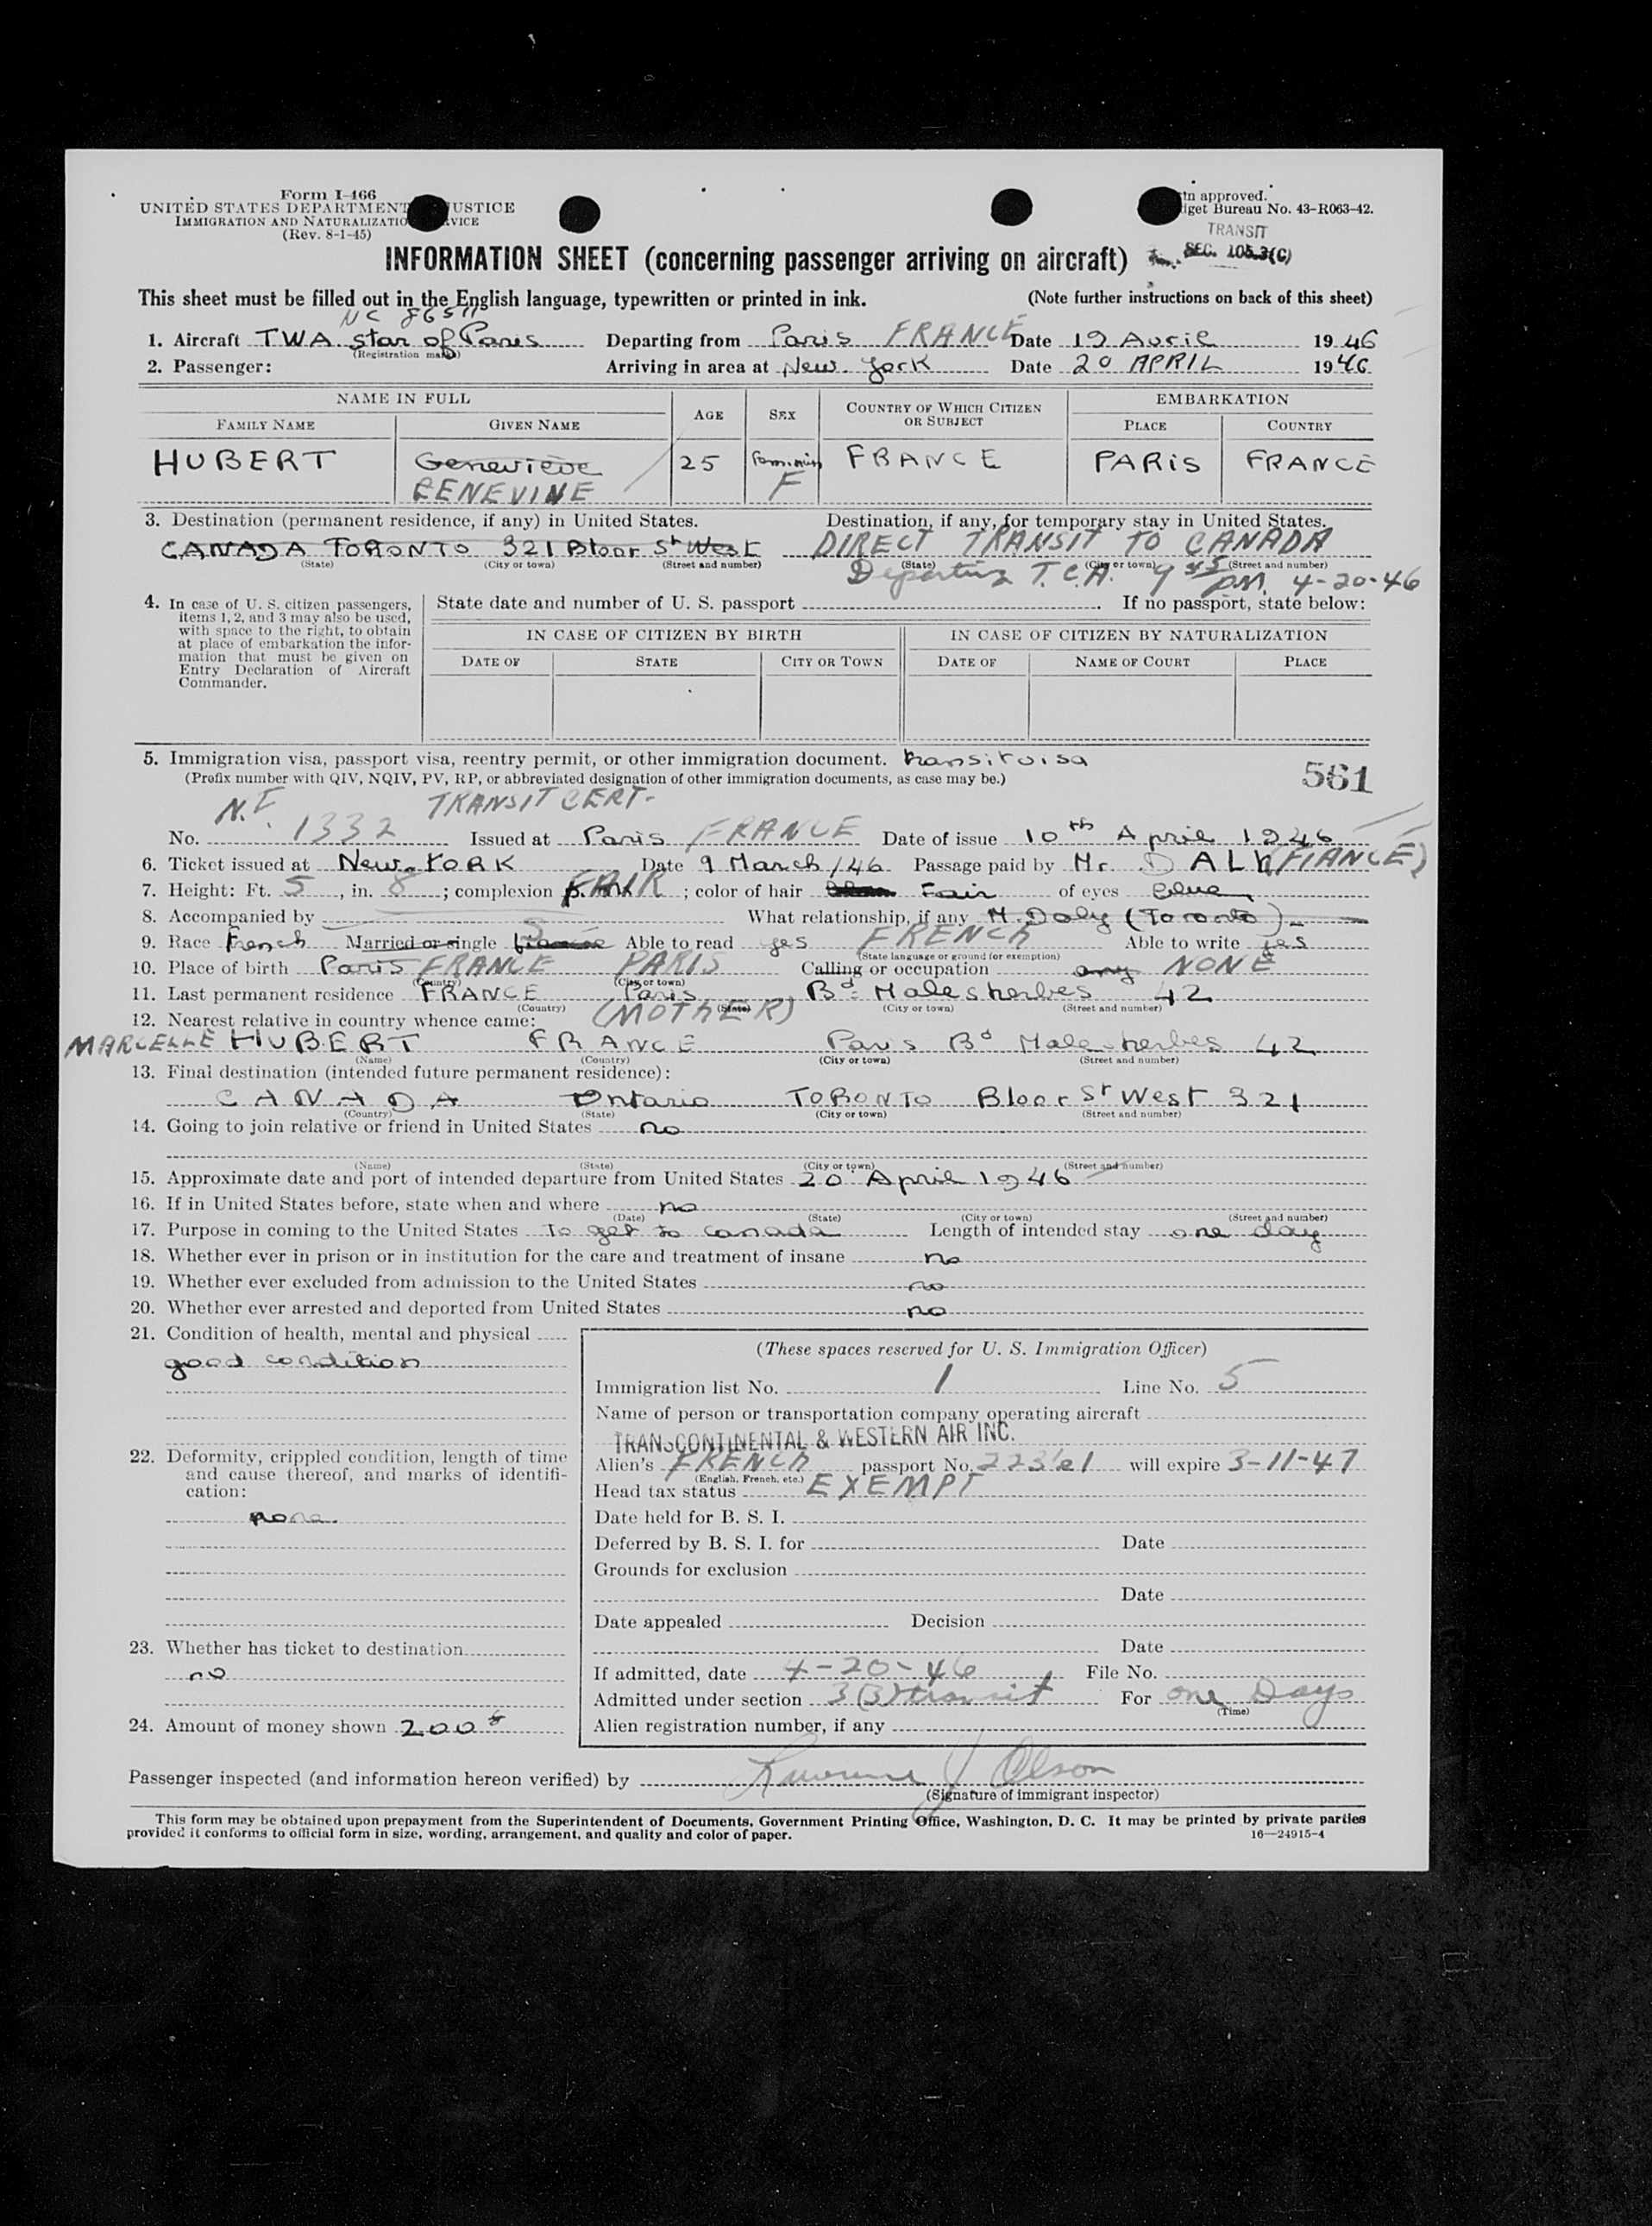 Form I-466
UNITED STATES DEPARTMENT JUSTICE
IMMIGRATION AND NATURALIZATIO VICE
(Rev. 8-1-45)
m approved.
get Bureau No. 43-R063-42.
TRANSIT
SEC. 105.3(C)
INFORMATION SHEET (concerning passenger arriving on aircraft)
This sheet must be filled out in the English language, typewritten or printed in ink. (Note further instructions on back of this sheet)
NC 86511
1. Aircraft TWA Star of Paris Departing from Paris FRANCE Date 19 Avril 1946
(Registration mark)
2. Passenger: Arriving in area at New York Date 20 APRIL 1946
NAME IN FULL AGE SEX COUNTRY OF WHICH CITIZEN OR SUBJECT EMBARKATION
FAMILY NAME GIVEN NAME PLACE COUNTRY
HUBERT Geneviève 25 Feminin FRANCE PARIS FRANCE
GENEVINE F
3. Destination (permanent residence, if any) in United States. Destination, if any, for temporary stay in United States.
CANADA TORONTO 321 Bloor St West DIRECT TRANSIT TO CANADA
(State) (City or town) (Street and number) (State) (City or town) (Street and number)
Departing T.C.A. 9 45 PM. 4-20-46
4. In case of U. S. citizen passengers, items 1, 2, and 3 may also be used, with space to the right, to obtain at place of embarkation the information that must be given on Entry Declaration of Aircraft Commander.
State date and number of U. S. passport If no passport, state below:
IN CASE OF CITIZEN BY BIRTH IN CASE OF CITIZEN BY NATURALIZATION
DATE OF STATE CITY OR TOWN DATE OF NAME OF COURT PLACE
5. Immigration visa, passport visa, reentry permit, or other immigration document. transit visa
(Prefix number with QIV, NQIV, PV, RP, or abbreviated designation of other immigration documents, as case may be.) 561
N.I. TRANSIT CERT-
No. 1332 Issued at Paris FRANCE Date of issue 10th April 1946
6. Ticket issued at New-YORK Date 9 March /46 Passage paid by Mr. DALY (FIANCE)
7. Height: Ft. 5, in. 8; complexion FAIR; color of hair Fair of eyes blue
8. Accompanied by What relationship, if any M. Daly (Toronto)
9. Race French Married or single S Able to read yes FRENCH Able to write yes
(State language or ground for exemption)
10. Place of birth Paris FRANCE PARIS Calling or occupation any NONE
(Country) (City or town)
11. Last permanent residence FRANCE Paris Bd Malesherbes 42
(Country) (State) (City or town) (Street and number)
12. Nearest relative in country whence came: (MOTHER)
MARCELLE HUBERT FRANCE Paris Bd Malesherbes 42
(Name) (Country) (City or town) (Street and number)
13. Final destination (intended future permanent residence):
CANADA Ontario TORONTO Bloor St West 321
(Country) (State) (City or town) (Street and number)
14. Going to join relative or friend in United States no
(Name) (State) (City or town) (Street and number)
15. Approximate date and port of intended departure from United States 20 April 1946
16. If in United States before, state when and where no
(Date) (State) (City or town) (Street and number)
17. Purpose in coming to the United States To get to canada Length of intended stay one day
18. Whether ever in prison or in institution for the care and treatment of insane no
19. Whether ever excluded from admission to the United States no
20. Whether ever arrested and deported from United States no
21. Condition of health, mental and physical
good condition
22. Deformity, crippled condition, length of time and cause thereof, and marks of identification:
none
23. Whether has ticket to destination
no
24. Amount of money shown 200 $
(These spaces reserved for U. S. Immigration Officer)
Immigration list No. 1 Line No. 5
Name of person or transportation company operating aircraft
TRANSCONTINENTAL & WESTERN AIR INC.
Alien's FRENCH passport No. will expire 3-11-47
(English, French, etc.)
Head tax status EXEMPT
Date held for B. S. I.
Deferred by B. S. I. for Date
Grounds for exclusion
Date
Date appealed Decision
Date
If admitted, date 4-20-46 File No.
Admitted under section 3(3) transit For one Days
(Time)
Alien registration number, if any
Passenger inspected (and information hereon verified) by J Olson
(Signature of immigrant inspector)
This form may be obtained upon prepayment from the Superintendent of Documents, Government Printing Office, Washington, D. C. It may be printed by private parties
provided it conforms to official form in size, wording, arrangement, and quality and color of paper. 16—24915-4